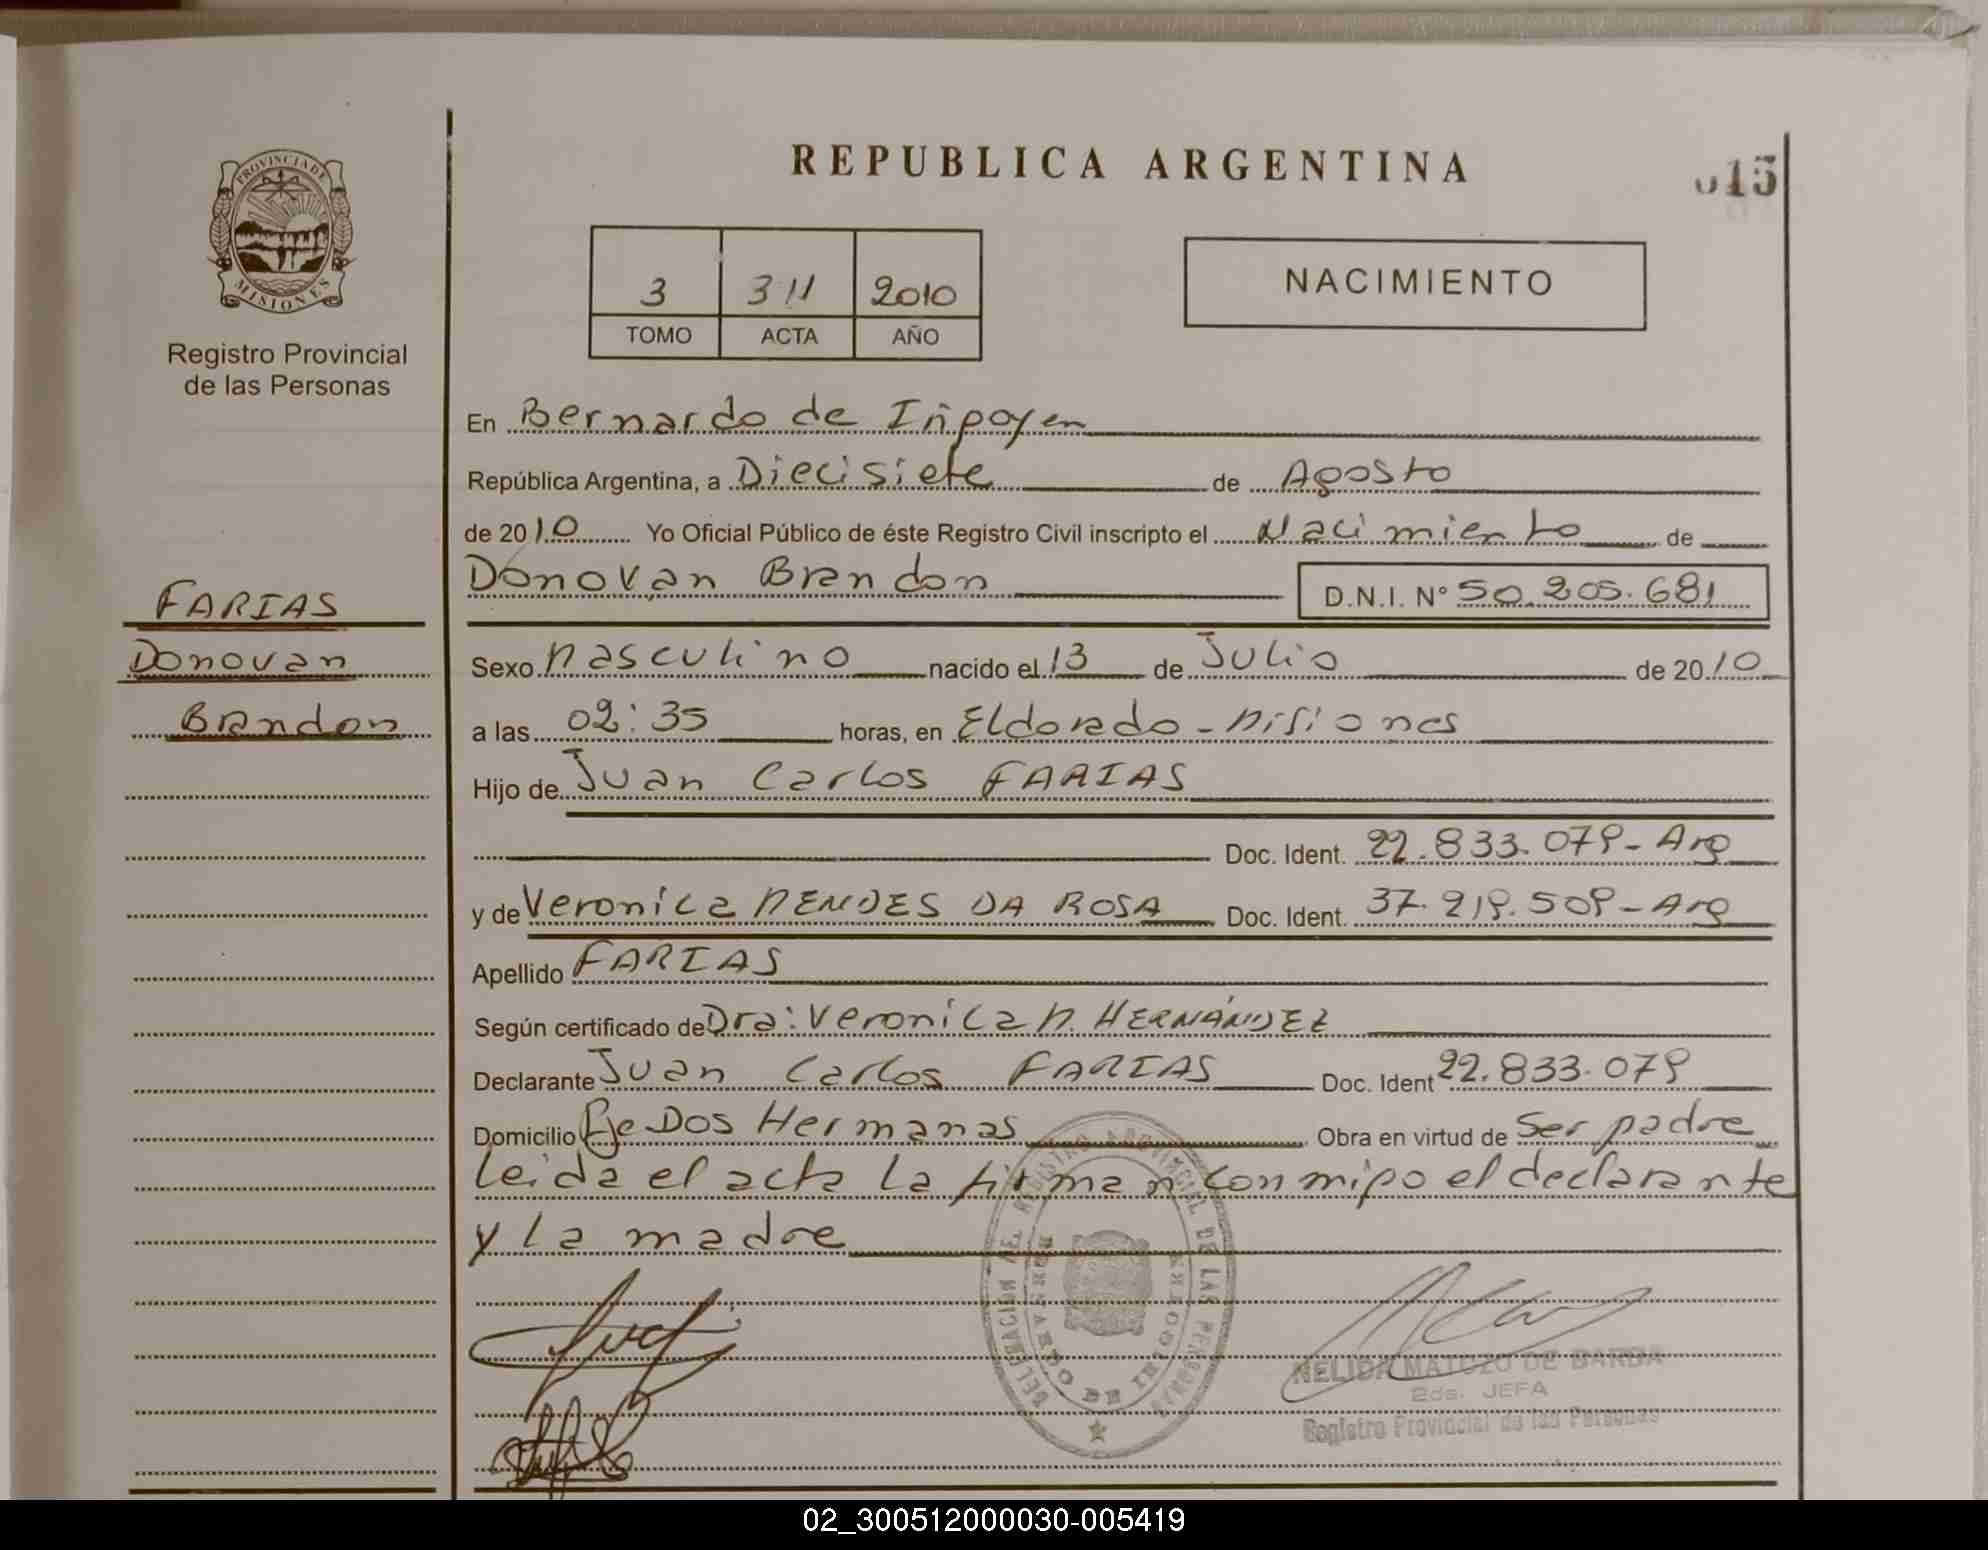 REPUBLICA ARGENTINA
015
PROVINCIA DE
MISIONES
Registro Provincial
de las Personas
3 311 2010
TOMO ACTA AÑO
NACIMIENTO
En Bernardo de Irigoyen
República Argentina, a Diecisiete de Agosto
de 2010 Yo Oficial Público de éste Registro Civil inscripto el Nacimiento de
Donovan Brandon D.N.I. N° 50.205.681
FARIAS
Donovan
Brandon
Sexo Masculino nacido el 13 de Julio de 2010
a las 02:35 horas, en Eldorado - Misiones
Hijo de Juan Carlos FARIAS
Doc. Ident. 22.833.079 - Arg
y de Veronica MENDES DA ROSA Doc. Ident. 37.219.509 - Arg
Apellido FARIAS
Según certificado de Dra: Veronica M. HERNÁNDEZ
Declarante Juan Carlos FARIAS Doc. Ident 22.833.079
Domicilio Pje Dos Hermanas Obra en virtud de Ser padre
Leida el acta la firman con migo el declarante
y la madre
NELIDA MATOZO DE BARBA
2da. JEFA
Registro Provincial de las Personas
02_300512000030-005419